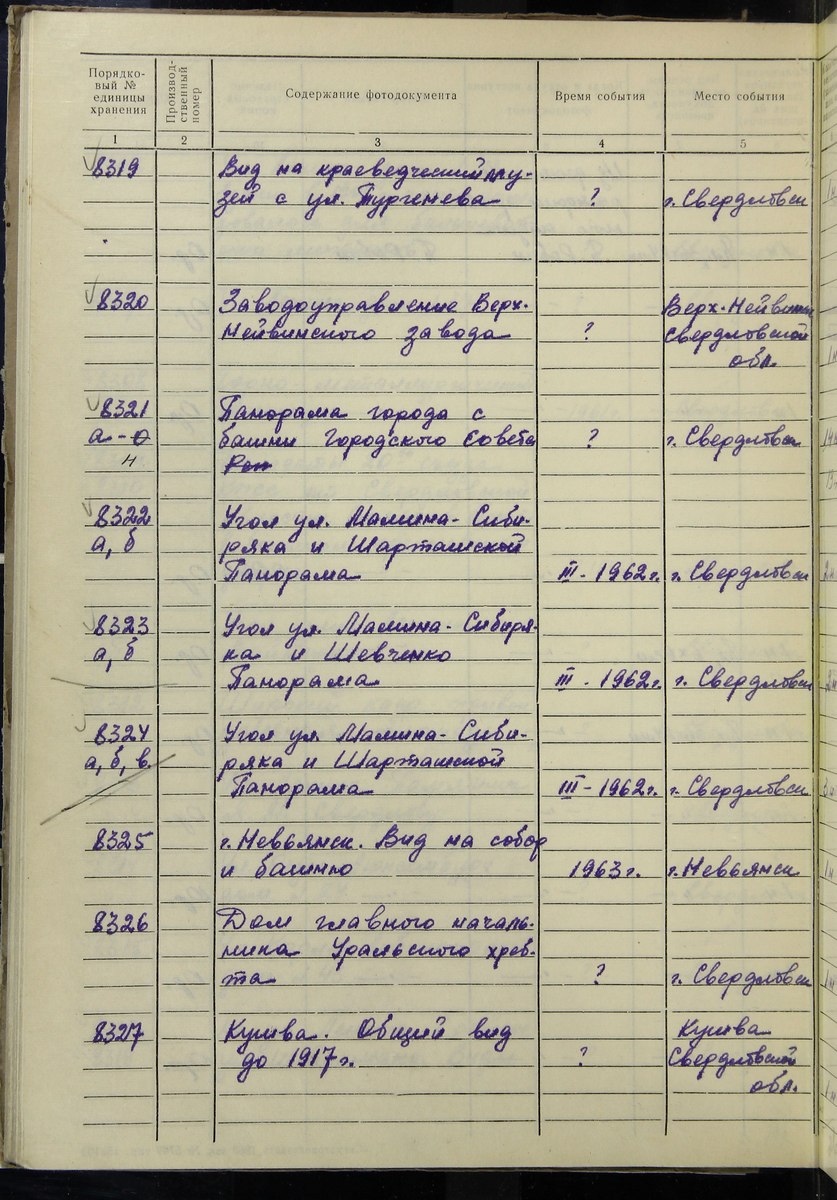 Порядко-
вый №
единицы
хранения
Производ-
ственный
номер
Содержание фотодокумента
Время события
Место события
1 2 3 4 5
8319 Вид на краеведческий му-
зей с ул. Тургенева ? г. Свердловск
8320 Заводоуправление Верх- Верх-Нейвинск
Нейвинского завода ? Свердловской
обл.
8321 Панорама города с
а-о башни Городского Совета ? г. Свердловск
н
8322 Угол ул. Мамина-Сиби-
а, б ряка и Шарташской
Панорама III-1962 г. г. Свердловск
8323 Угол ул. Мамина-Сибиря-
а, б ка и Шевченко
Панорама III-1962 г. г. Свердловск
8324 Угол ул. Мамина-Сиби-
а, б, в ряка и Шарташской
Панорама III-1962 г. г. Свердловск
8325 г. Невьянск. Вид на собор
и башню 1963 г. г. Невьянск
8326 Дом главного началь-
ника Уральского хреб-
та ? г. Свердловск
8327 Кушва. Общий вид Кушва
до 1917 г. ? Свердловской
обл.